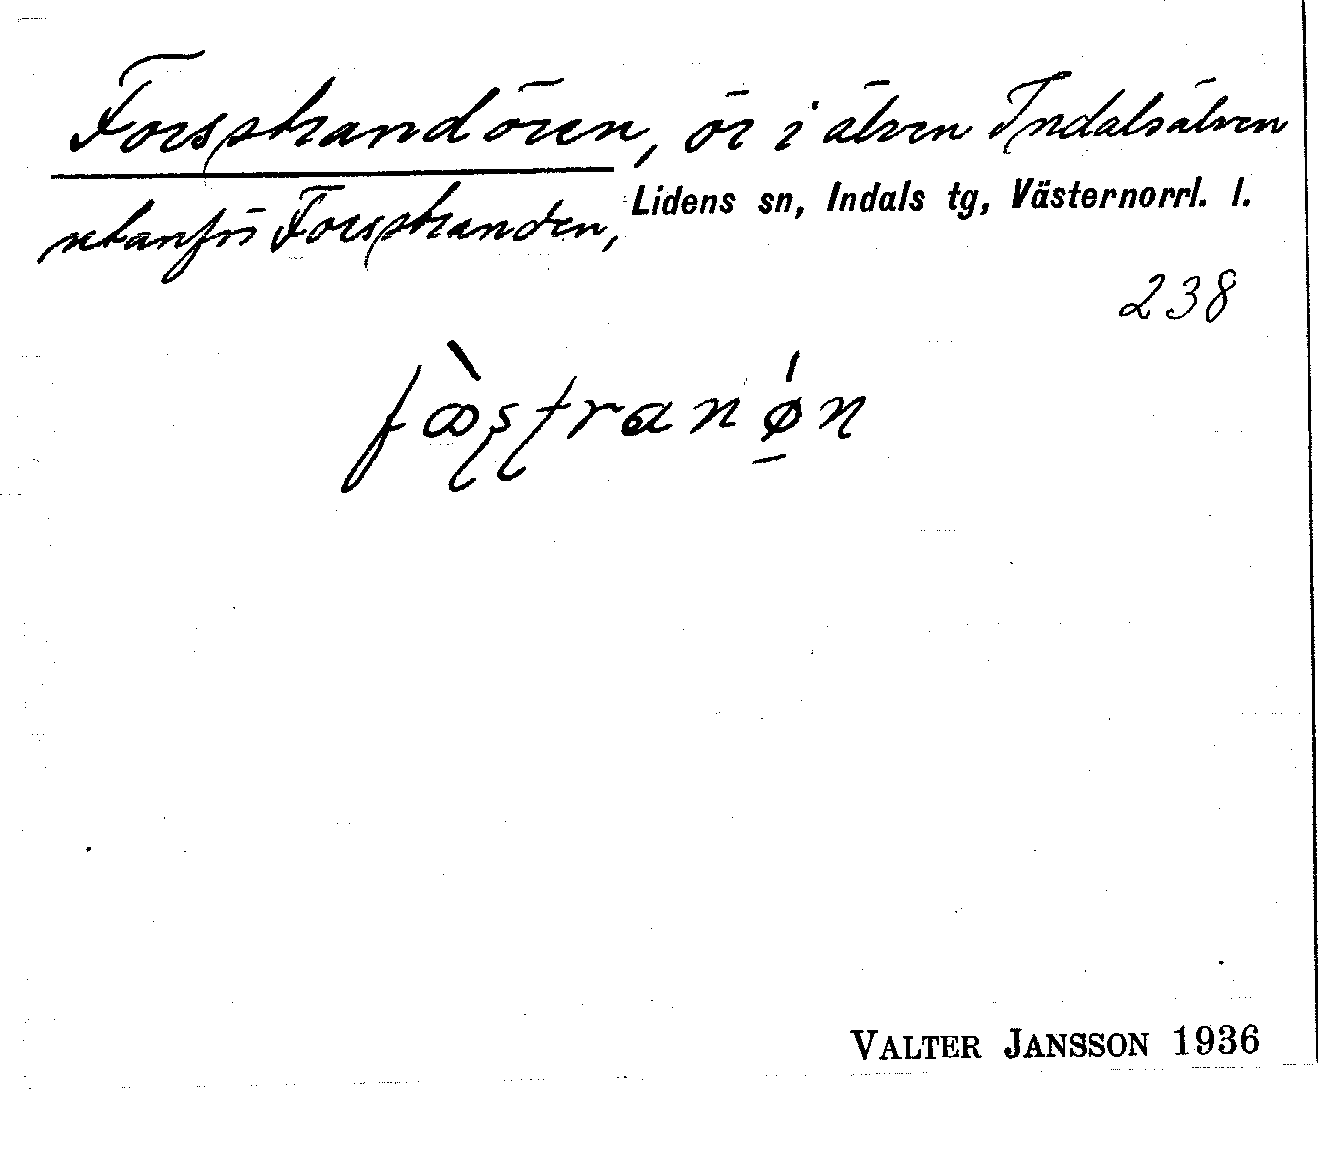 Forsstrandören, ör i älven Indalsälven
utanför Forsstranden, Lidens sn, Indals tg, Västernorrl. l.
238
VALTER JANSSON 1936